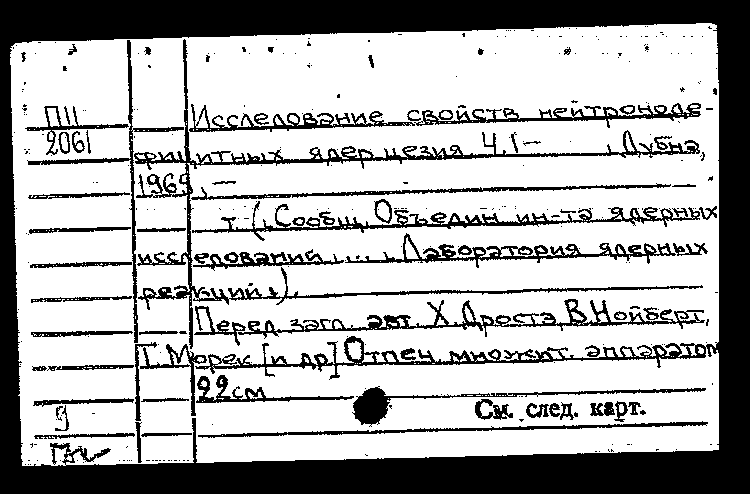 П11
2061
Исследование свойств нейтроноде-
фицитных ядер цезия Ч.1— , Дубна,
1969, —
т. (, Сообщ. Объедин ин-та ядерных
исследований , ... , Лаборатория ядерных
реакций,).
Перед загл. авт. Х.Дростэ, В.Нойберт,
Т. Морек [и др] Отпеч. множит. аппаратом
22см
9
См. след. карт.